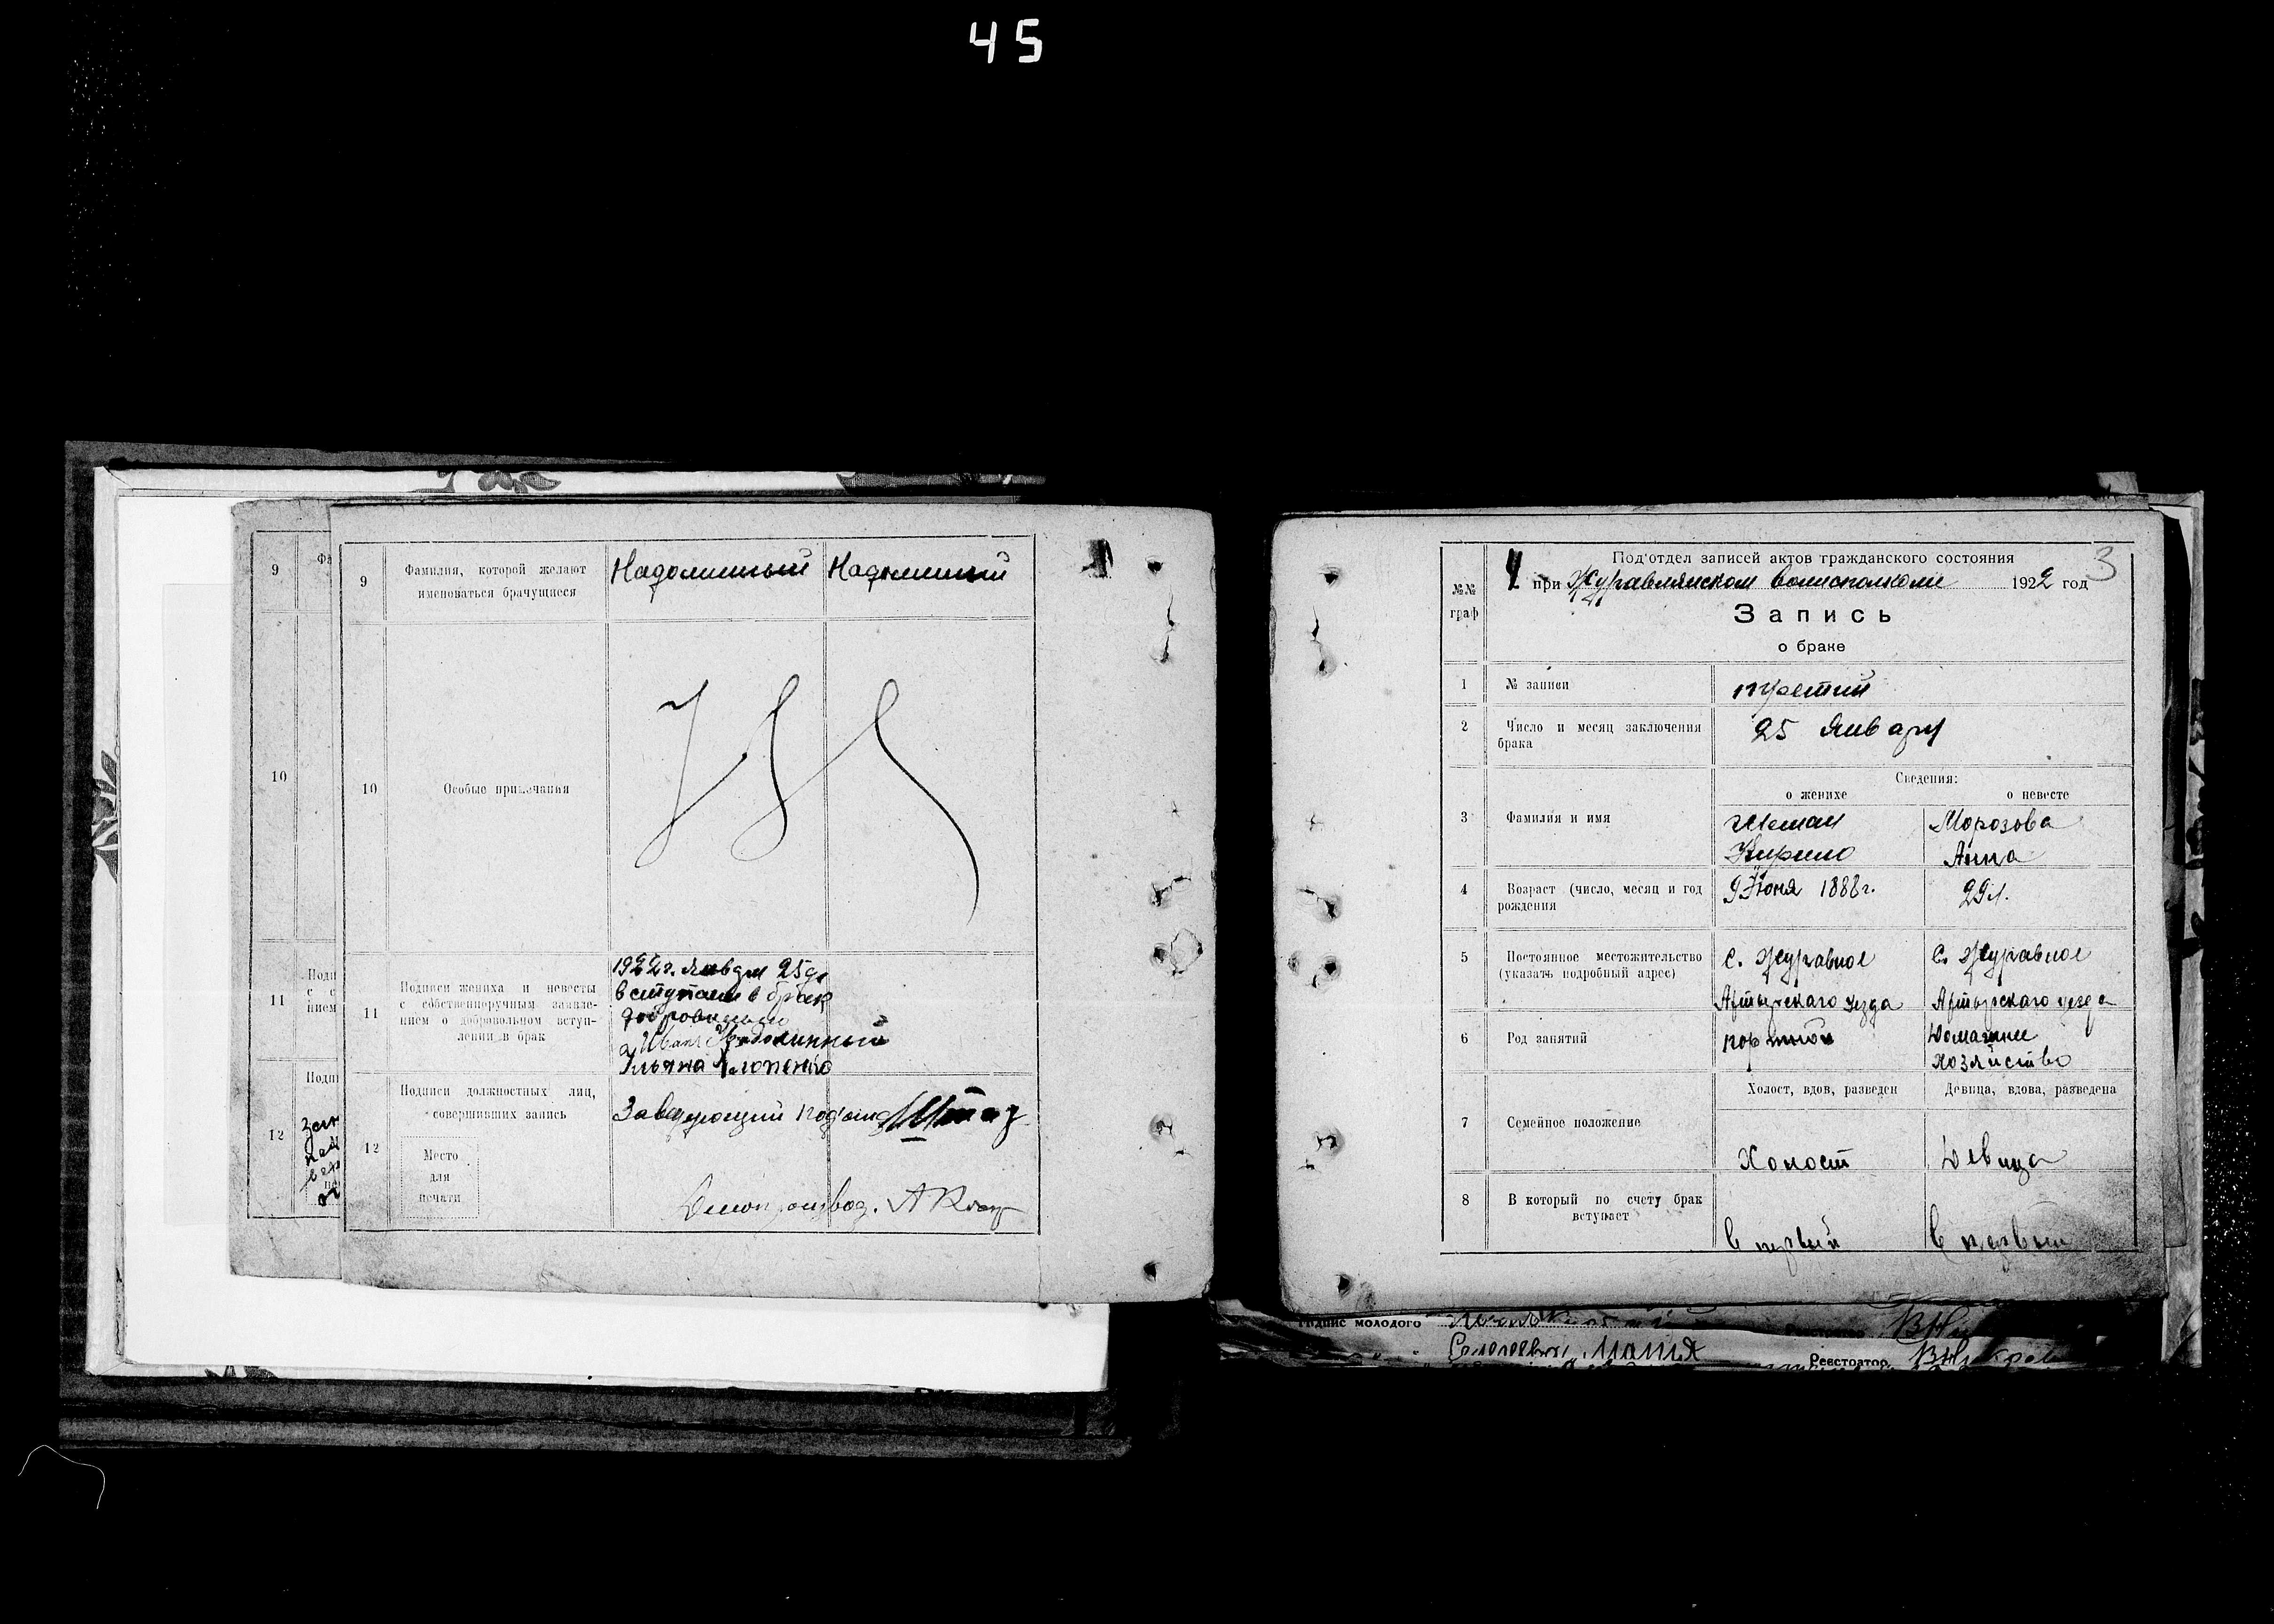 45
9
Фа
10
11
Подп
с с
нием
Подп
12
9
Фамилия, которой желают
именоваться брачущиеся
Надолинный
Надолинный
10
Особые примечания
11
Подписи жениха и невесты
с собственноручным заявле-
нием о добровольном вступ-
лении в брак
1922 г. Января 25 д.
вступаем в брак
добровольно
Иван Надолинный
12
Подписи должностных лиц,
совершивших запись
Заведующий подотд
Место
для
печати
Делопроизвод.
3
№№
граф
Под'отдел записей актов гражданского состояния
4 при Журавлянском волисполкоме 1922 год
Запись
о браке
1
№ записи
третий
2
Число и месяц заключения
брака
25 Января
Сведения:
о женихе
о невесте
3
Фамилия и имя
Кирило
Морозова
Анна
4
Возраст (число, месяц и год
рождения
9 Июня 1888 г.
29 л.
5
Постоянное местожительство
(указать подробный адрес)
с. Журавное
Ахтырскаго уезда
с. Журавное
Ахтырскаго уезда
6
Род занятий
портной
Домашнее
хозяйство
7
Семейное положение
Холост, вдов, разведен
Девица, вдова, разведена
Холост
Девица
8
В который по счету брак
вступает
В первый
В первый
Подпис молодого
Реєстратор